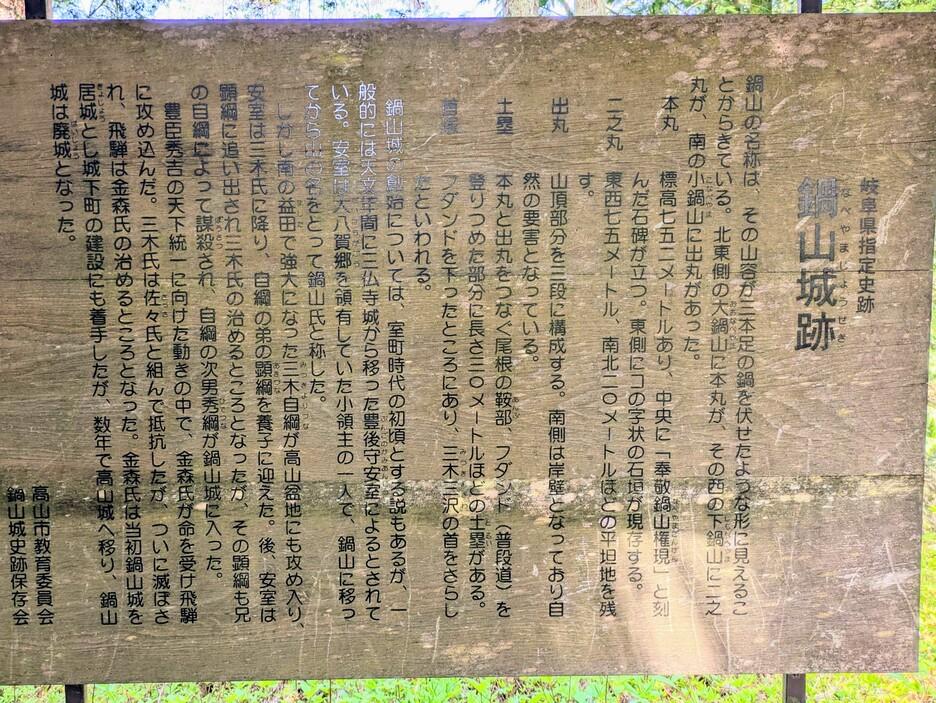 岐阜県指定史跡
鍋山城跡
なべやまじょうせき
鍋山の名称は、その山容が三本足の鍋を伏せたような形に見えるこ
とからきている。北東側の大鍋山に本丸が、その西の下鍋山に二之
丸が、南の小鍋山に出丸があった。
本丸 標高七五二メートルあり、中央に「奉敬鍋山権現」と刻
んだ石碑が立つ。東側にコの字状の石垣が現存する。
二之丸 東西七五メートル、南北二〇メートルほどの平坦地を残
す。
出丸 山頂部分を三段に構成する。南側は岸壁となっており自
然の要害となっている。
土塁 本丸と出丸をつなぐ尾根の鞍部、フダンド(普段道)を
登りつめた部分に長さ三〇メートルほどの土塁がある。
首塚 フダンドを下ったところにあり、三木三沢の首をさらし
たといわれる。
鍋山城の創始については、室町時代の初頃とする説もあるが、一
般的には天文年間に三仏寺城から移った豊後守安室によるとされて
いる。安室は大八賀郷を領有していた小領主の一人で、鍋山に移っ
てから山の名をとって鍋山氏と称した。
しかし南の益田で強大になった三木自綱が高山盆地にも攻め入り、
安室は三木氏に降り、自綱の弟の顕綱を養子に迎えた。後、安室は
顕綱に追い出され三木氏の治めるところとなったが、その顕綱も兄
の自綱によって謀殺され、自綱の次男秀綱が鍋山城に入った。
豊臣秀吉の天下統一に向けた動きの中で、金森氏が命を受け飛騨
に攻め込んだ。三木氏は佐々氏と組んで抵抗したが、ついに滅ぼさ
れ、飛騨は金森氏の治めるところとなった。金森氏は当初鍋山城を
居城とし城下町の建設にも着手したが、数年で高山城へ移り、鍋山
城は廃城となった。
高山市教育委員会
鍋山城史跡保存会